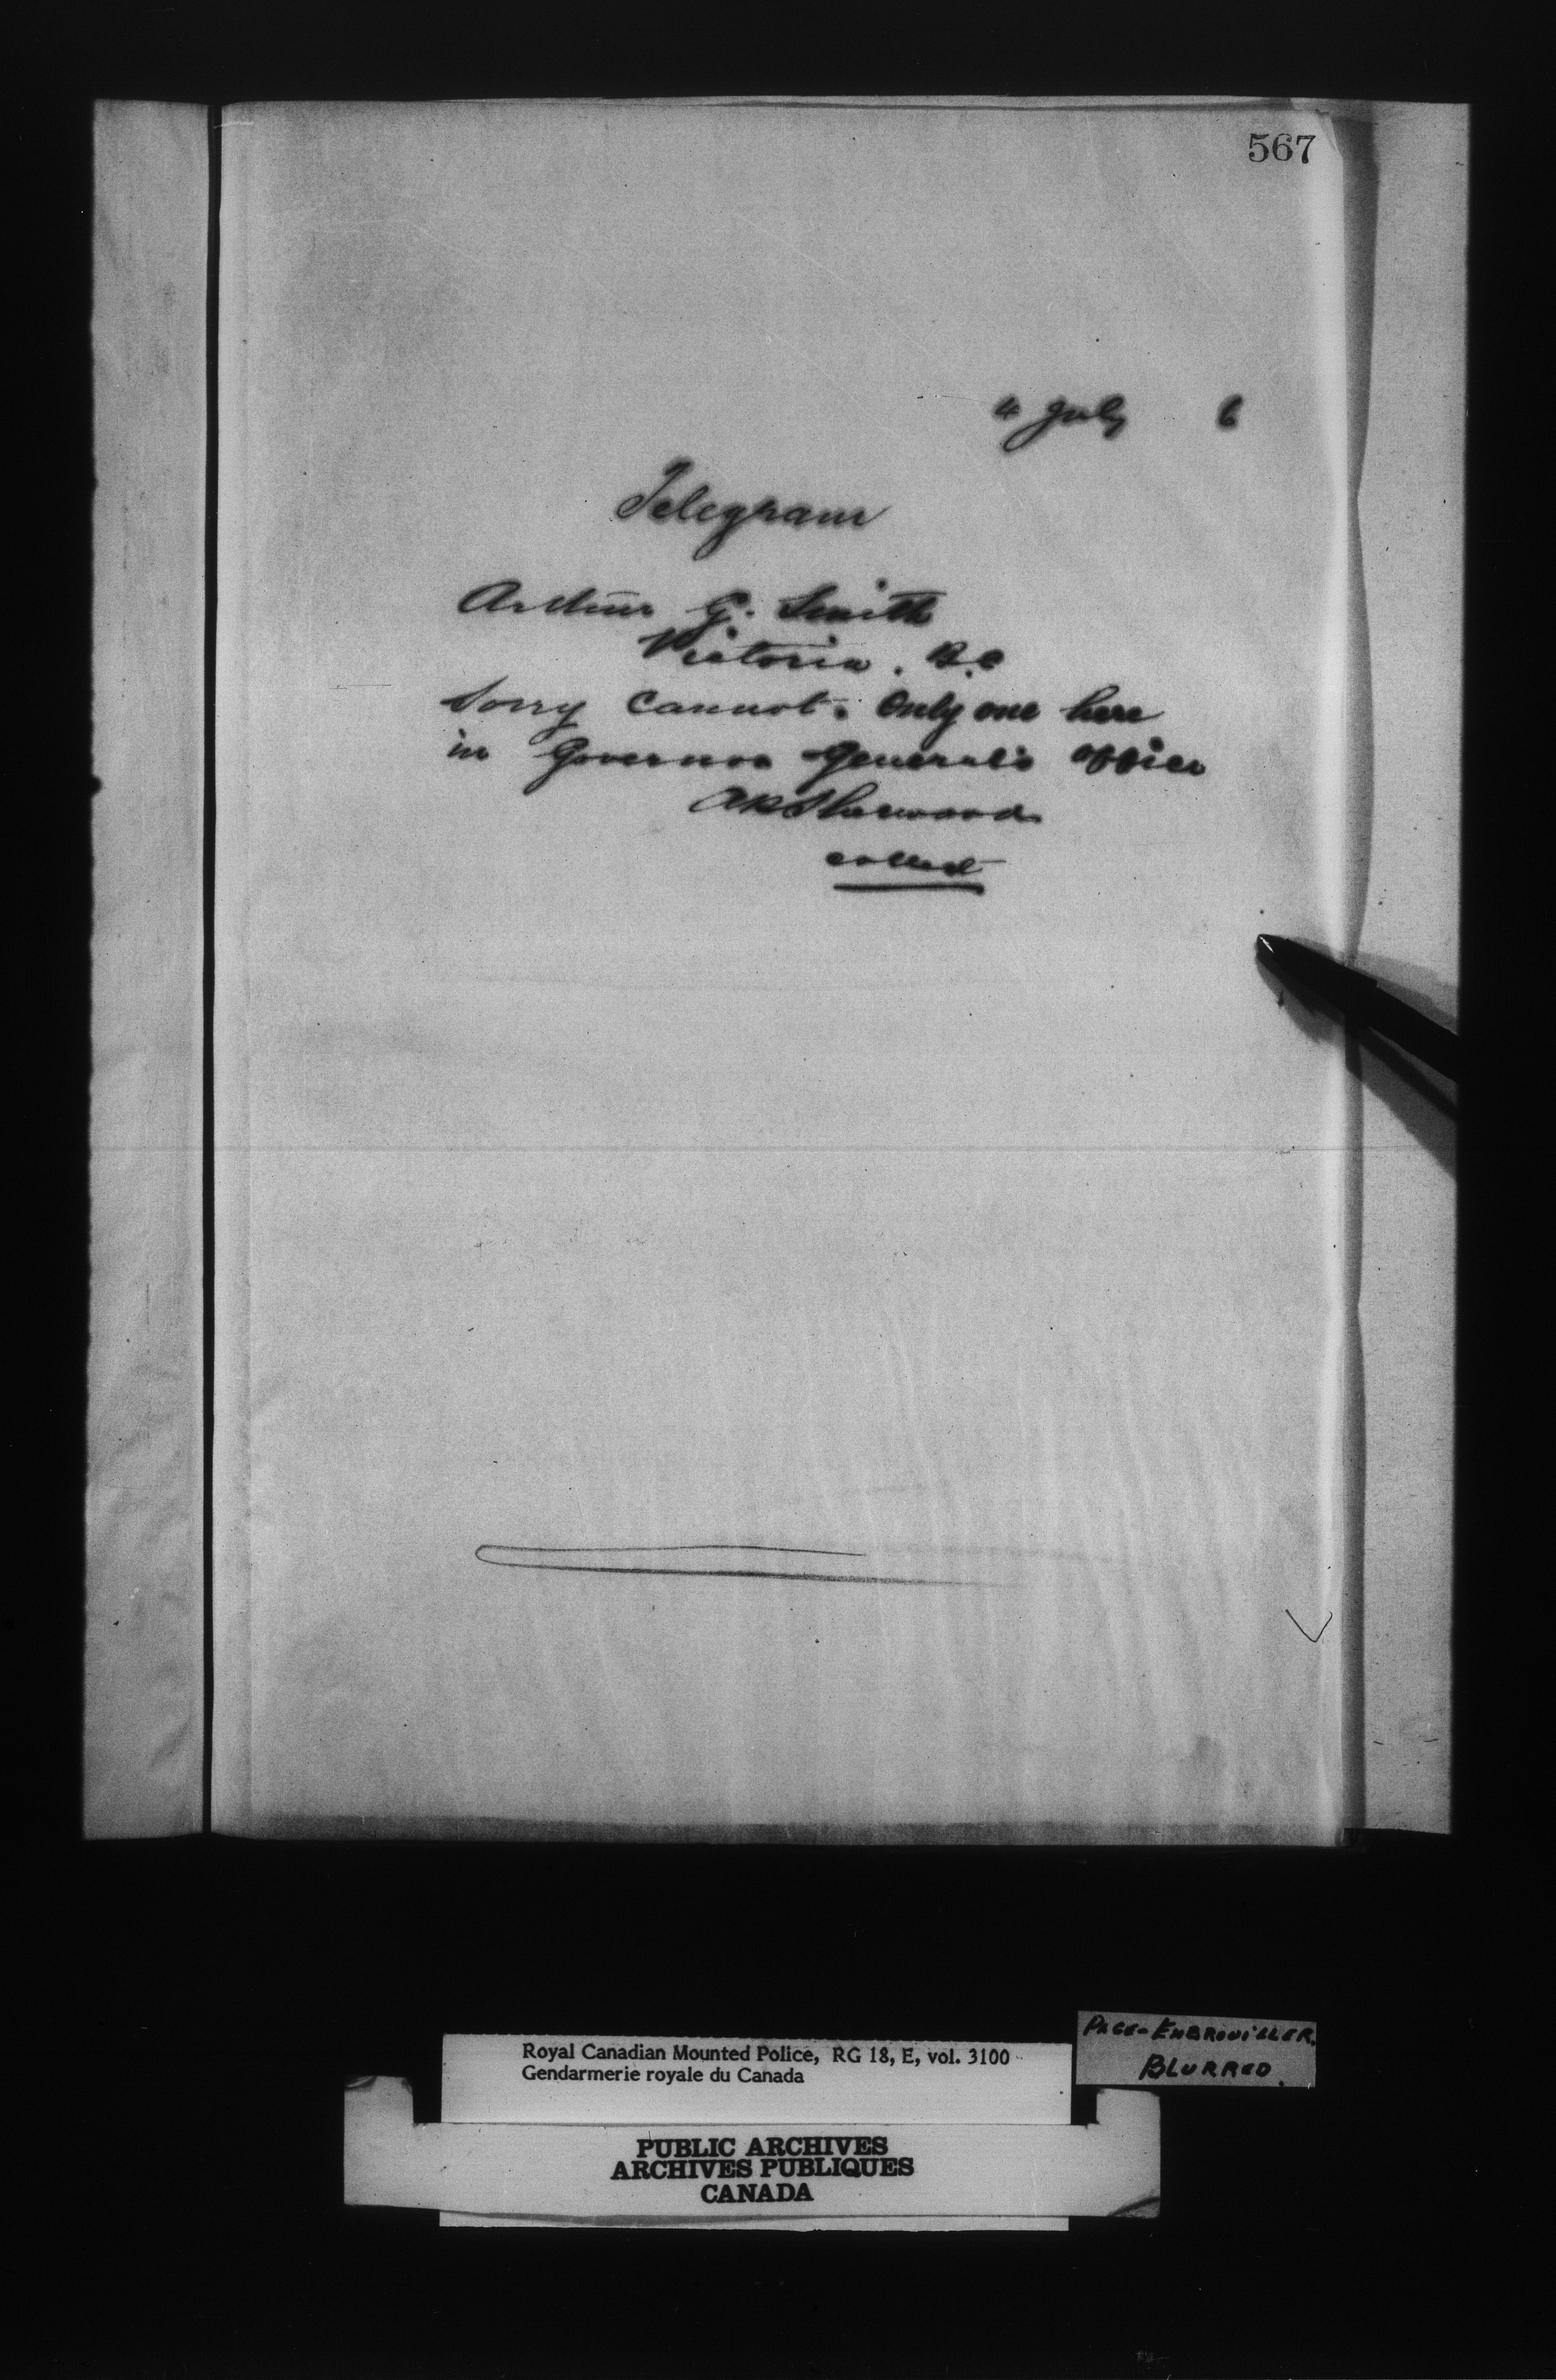 567
4 July 6
Telegram
Arthur G. Smith
Victoria. B.C
Sorry cannot. Only one here
in Governor General's office
AP Sherwood
collect
Royal Canadian Mounted Police, RG 18, E, vol. 3100
Gendarmerie royale du Canada
PAGE-EMBROUILLER.
BLURRED.
PUBLIC ARCHIVES
ARCHIVES PUBLIQUES
CANADA